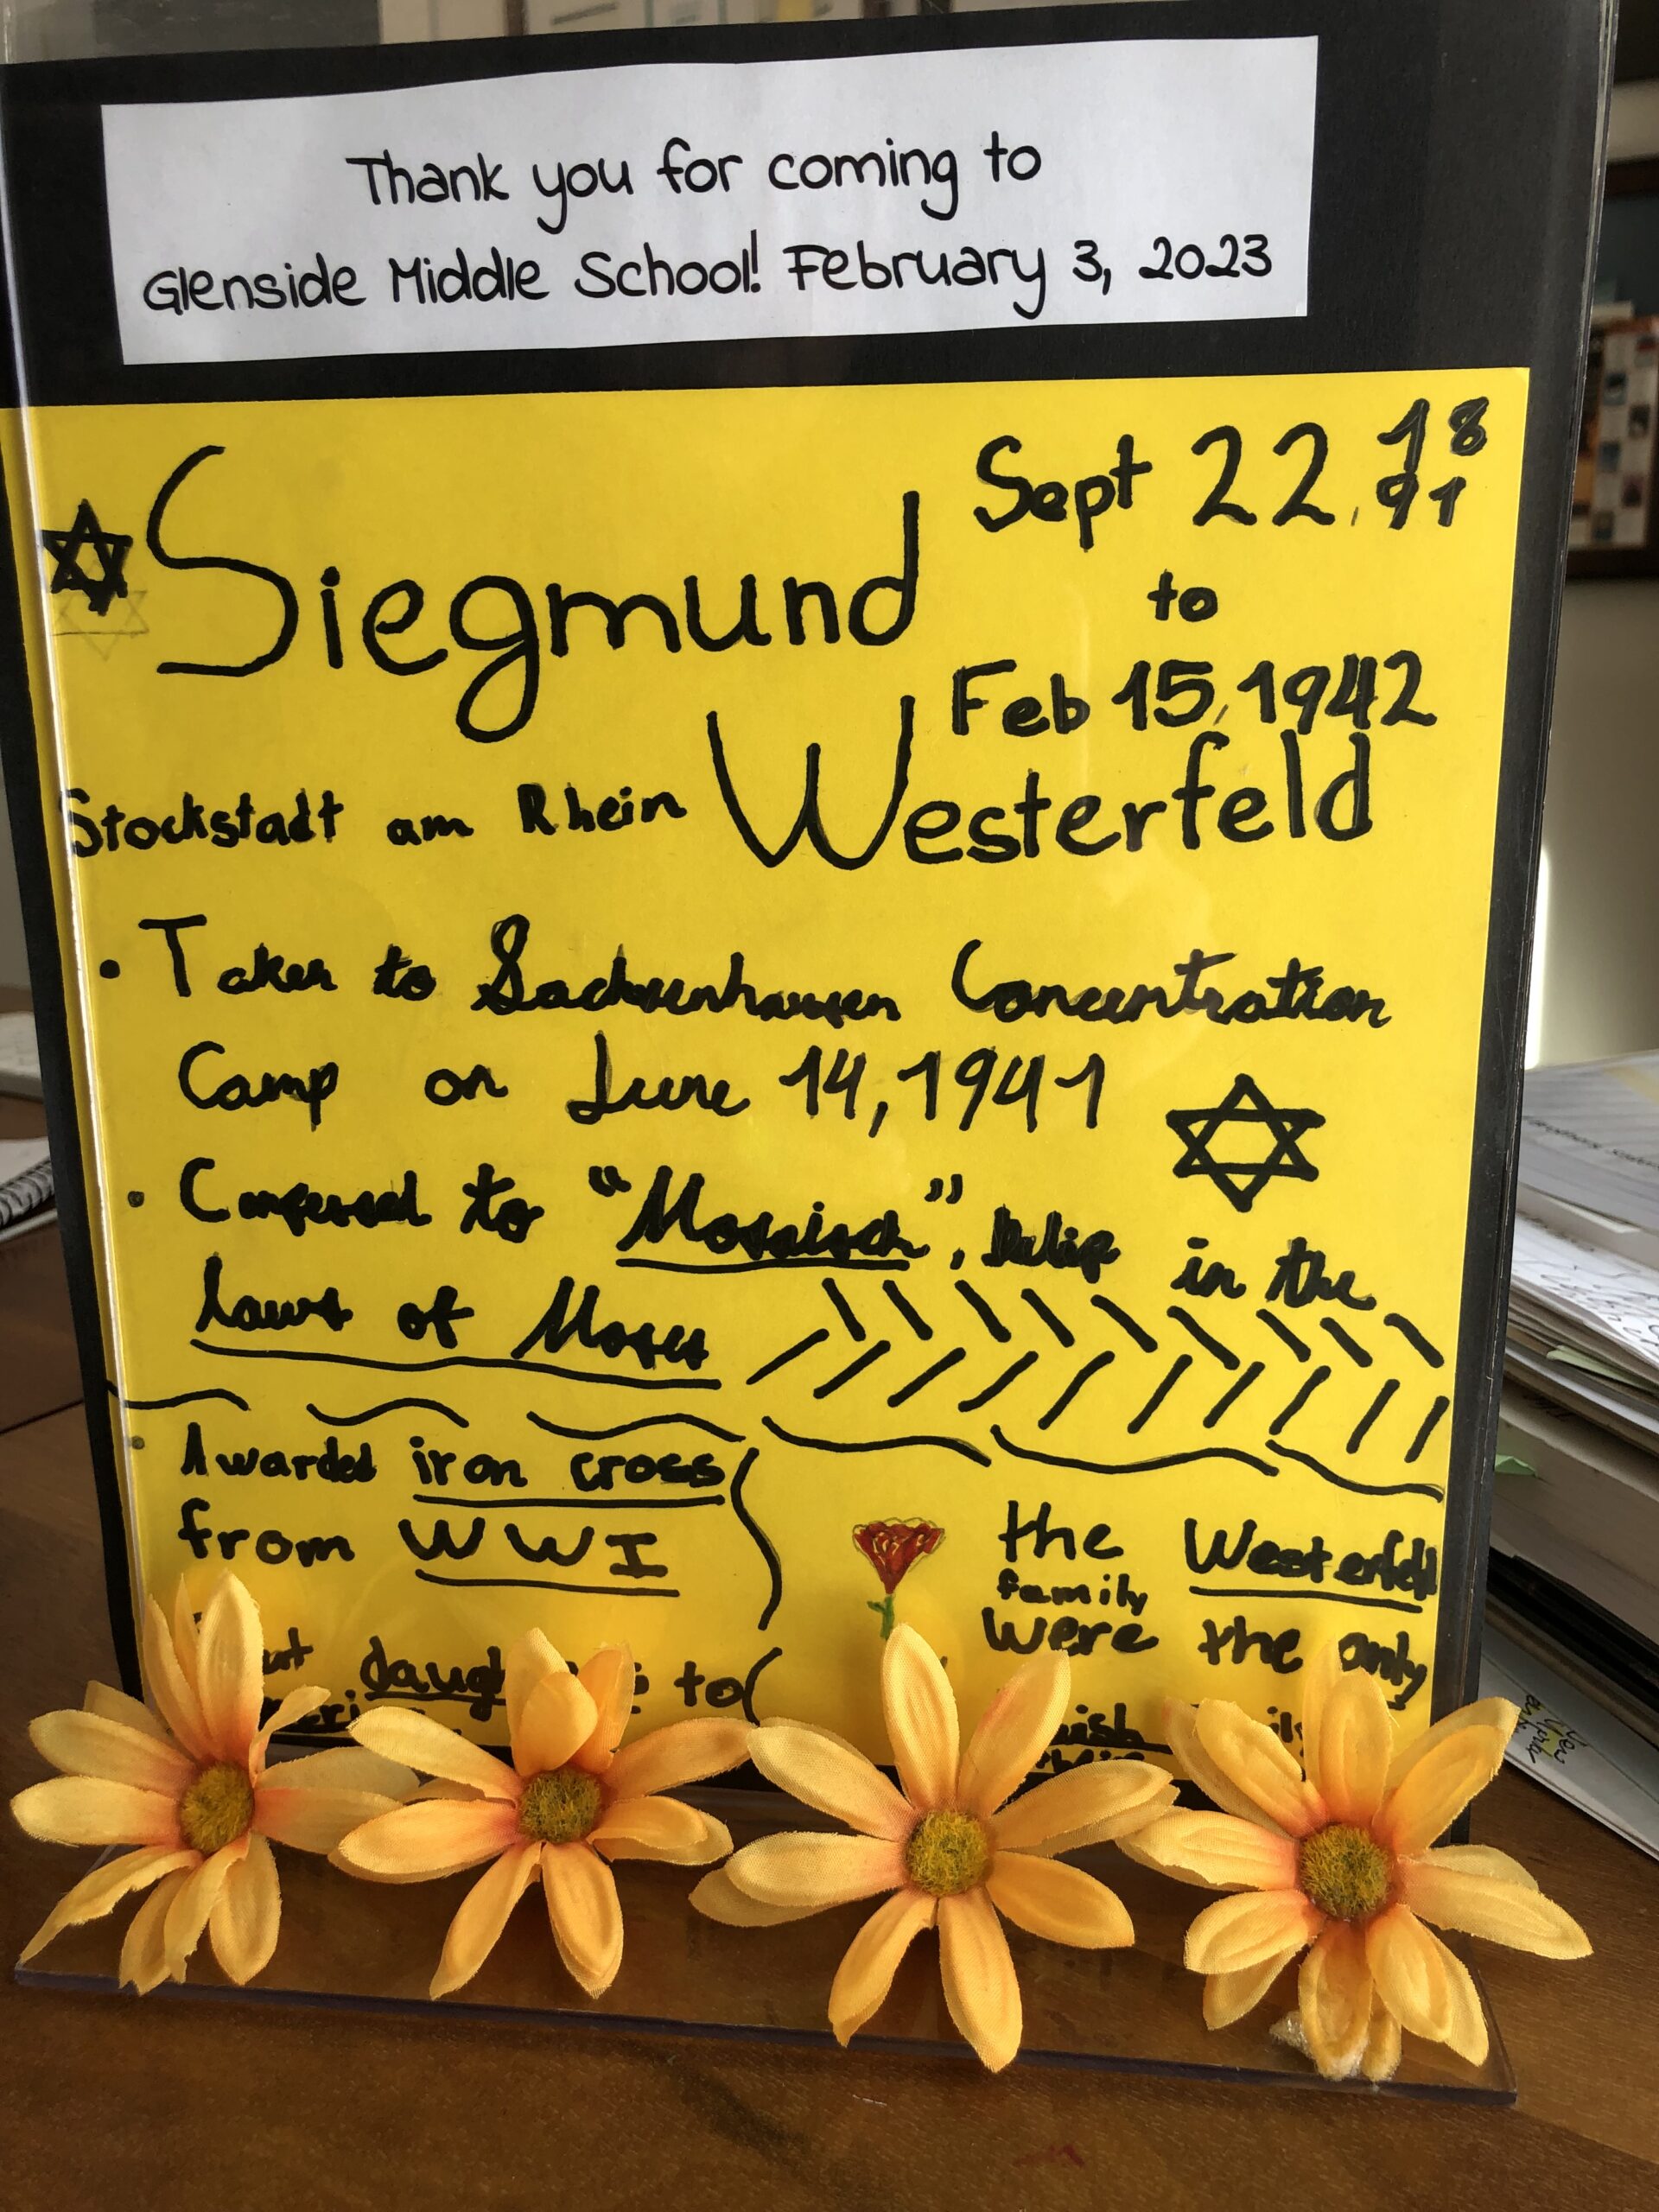 Thank you for coming to
Glenside Middle School! February 3, 2023
Siegmund
Westerfeld
Sept 22, 1891
to
Feb 15, 1942
Stockstadt am Rhein
• Taken to Sachsenhausen Concentration
Camp on June 14, 1941
• Confessed to "Mosaisch", in the
Laws of Moses
• Awarded iron cross
from WWI
to
the Westerfeld
family
were the only